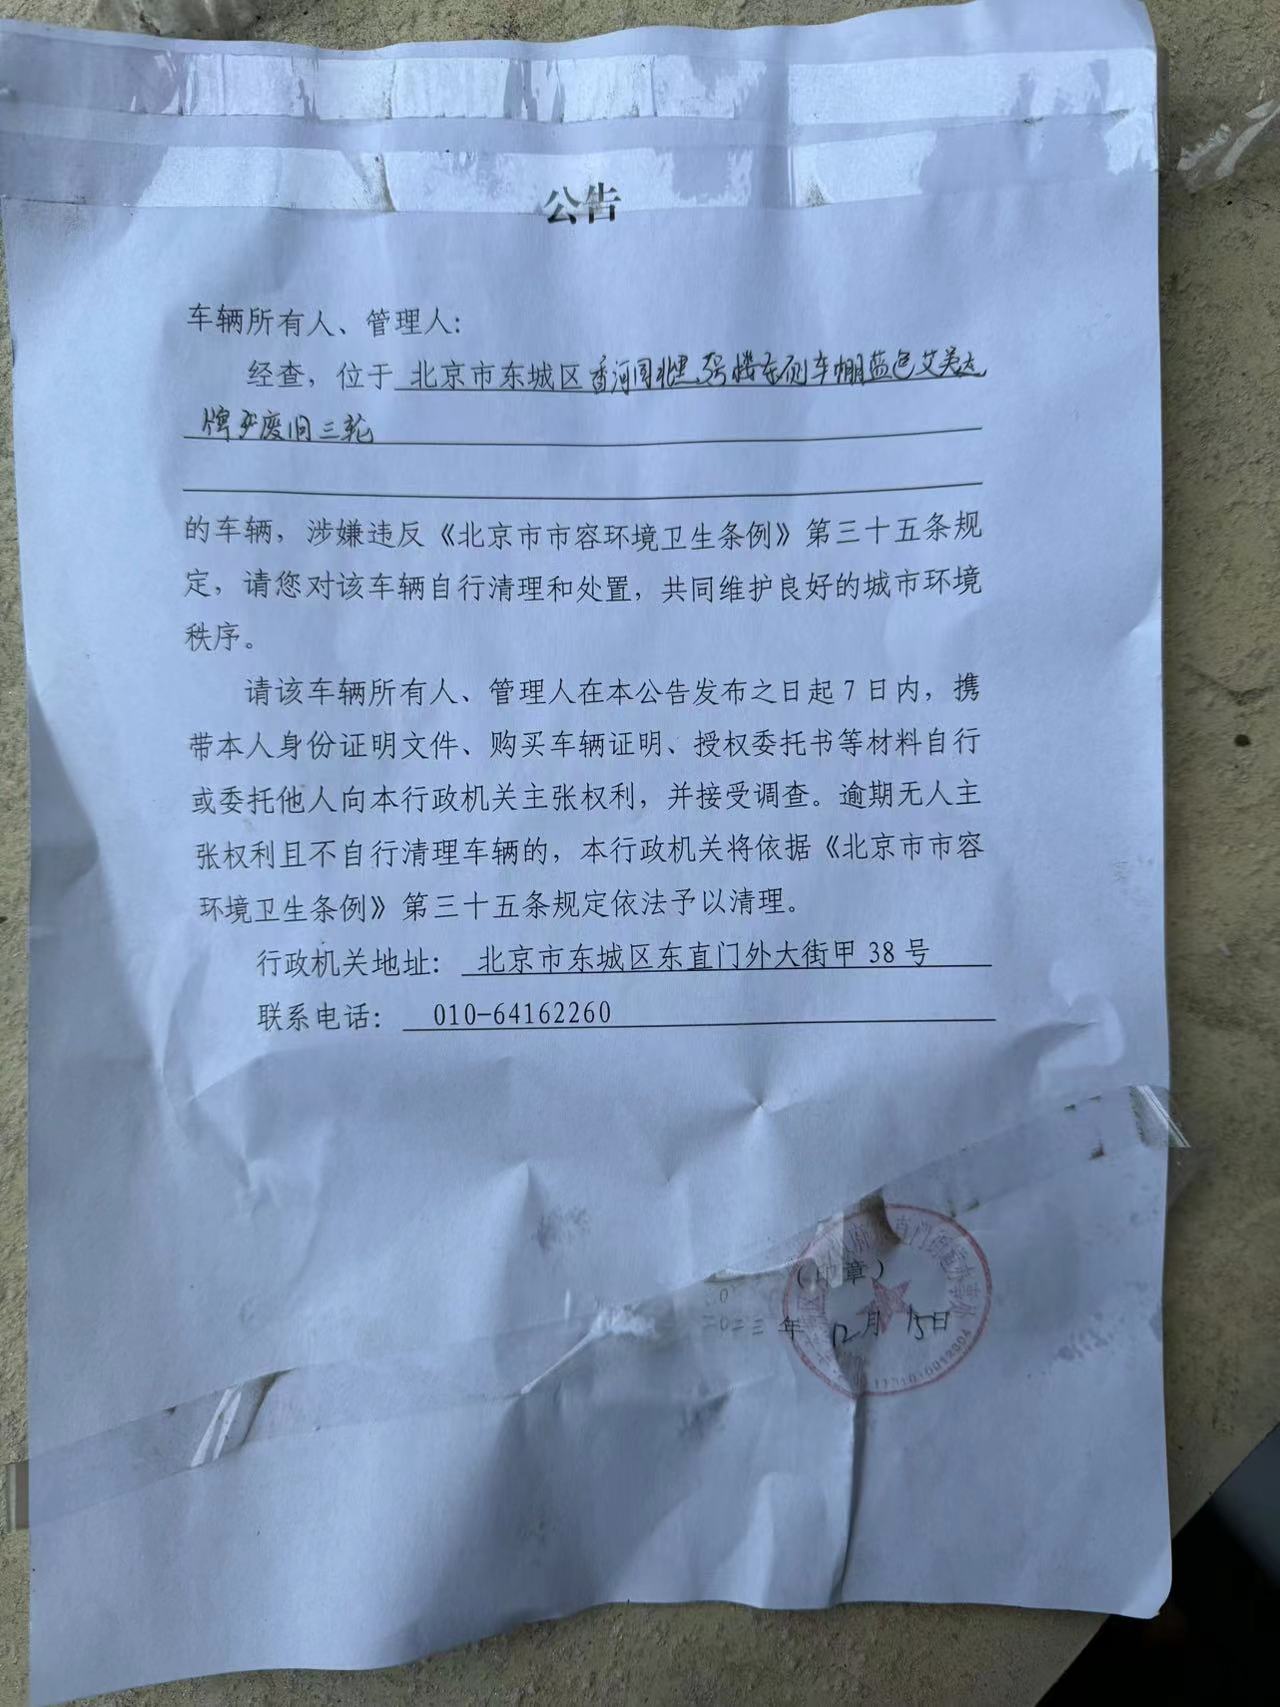 公告
车辆所有人、管理人：
经查，位于 北京市东城区香河园北里 号楼东侧车棚蓝色艾美达
牌 废旧三轮
的车辆，涉嫌违反《北京市市容环境卫生条例》第三十五条规
定，请您对该车辆自行清理和处置，共同维护良好的城市环境
秩序。
请该车辆所有人、管理人在本公告发布之日起7日内，携
带本人身份证明文件、购买车辆证明、授权委托书等材料自行
或委托他人向本行政机关主张权利，并接受调查。逾期无人主
张权利且不自行清理车辆的，本行政机关将依据《北京市市容
环境卫生条例》第三十五条规定依法予以清理。
行政机关地址： 北京市东城区东直门外大街甲38号
联系电话： 010-64162260
（印章）
直门街道办事处
年 12月15日